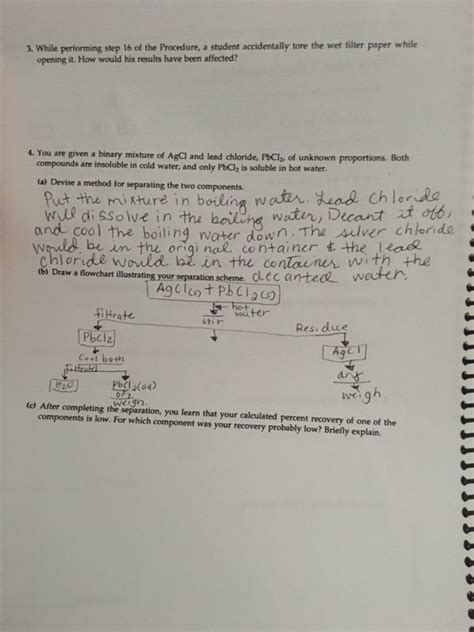 3. While performing step 16 of the Procedure, a student accidentally tore the wet filter paper while
opening it. How would his results have been affected?
4. You are given a binary mixture of AgCl and lead chloride, PbCl₂, of unknown proportions. Both
compounds are insoluble in cold water, and only PbCl₂ is soluble in hot water.
(a) Devise a method for separating the two components.
Put the mixture in boiling water. Lead Chloride
will dissolve in the boiling water, Decant it off,
and cool the boiling water down. The silver chloride
would be in the original container & the lead
chloride would be in the container with the
(b) Draw a flowchart illustrating your separation scheme. decanted water.
AgCl(s) + PbCl₂(s)
hot
filtrate stir water
Residue
PbCl2 AgCl
Cool bath
filtrate dry
H₂O PbCl₂(aq) weigh.
dry
weigh.
(c) After completing the separation, you learn that your calculated percent recovery of one of the
components is low. For which component was your recovery probably low? Briefly explain.